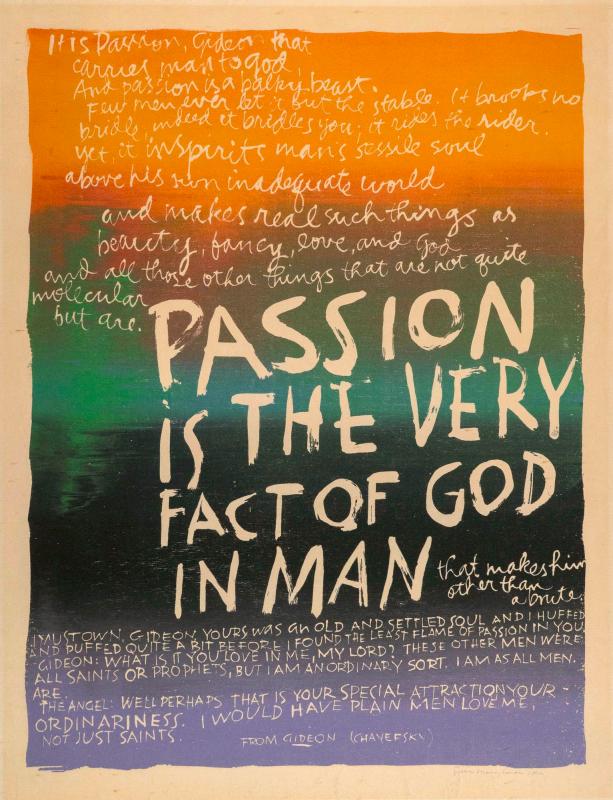 It is Passion, Gideon that
carries man to God,
And passion is a balky beast.
Few men ever let it out the stable. It brooks no
bridle, indeed it bridles you; it rides the rider.
yet, it inspirits man's sessile soul
above his own inadequate world
and makes real such things as
beauty, fancy, love, and God
and all those other things that are not quite
molecular
but are.
PASSION
iS THE VERY
FACT OF GOD
IN MAN
that makes him
other than
a brute.
I MUST OWN, GIDEON, YOURS WAS AN OLD AND SETTLED SOUL AND I HUFFED
AND PUFFED QUITE A BIT BEFORE I FOUND THE LEAST FLAME OF PASSION IN YOU.
GIDEON: WHAT IS IT YOU LOVE IN ME, MY LORD? THESE OTHER MEN WERE
ALL SAINTS OR PROPHETS, BUT I AM AN ORDINARY SORT. I AM AS ALL MEN.
ARE.
THE ANGEL: WELL PERHAPS THAT IS YOUR SPECIAL ATTRACTION YOUR -
ORDINARINESS. I WOULD HAVE PLAIN MEN LOVE ME,
NOT JUST SAINTS.
FROM GIDEON (CHAYEFSKY)